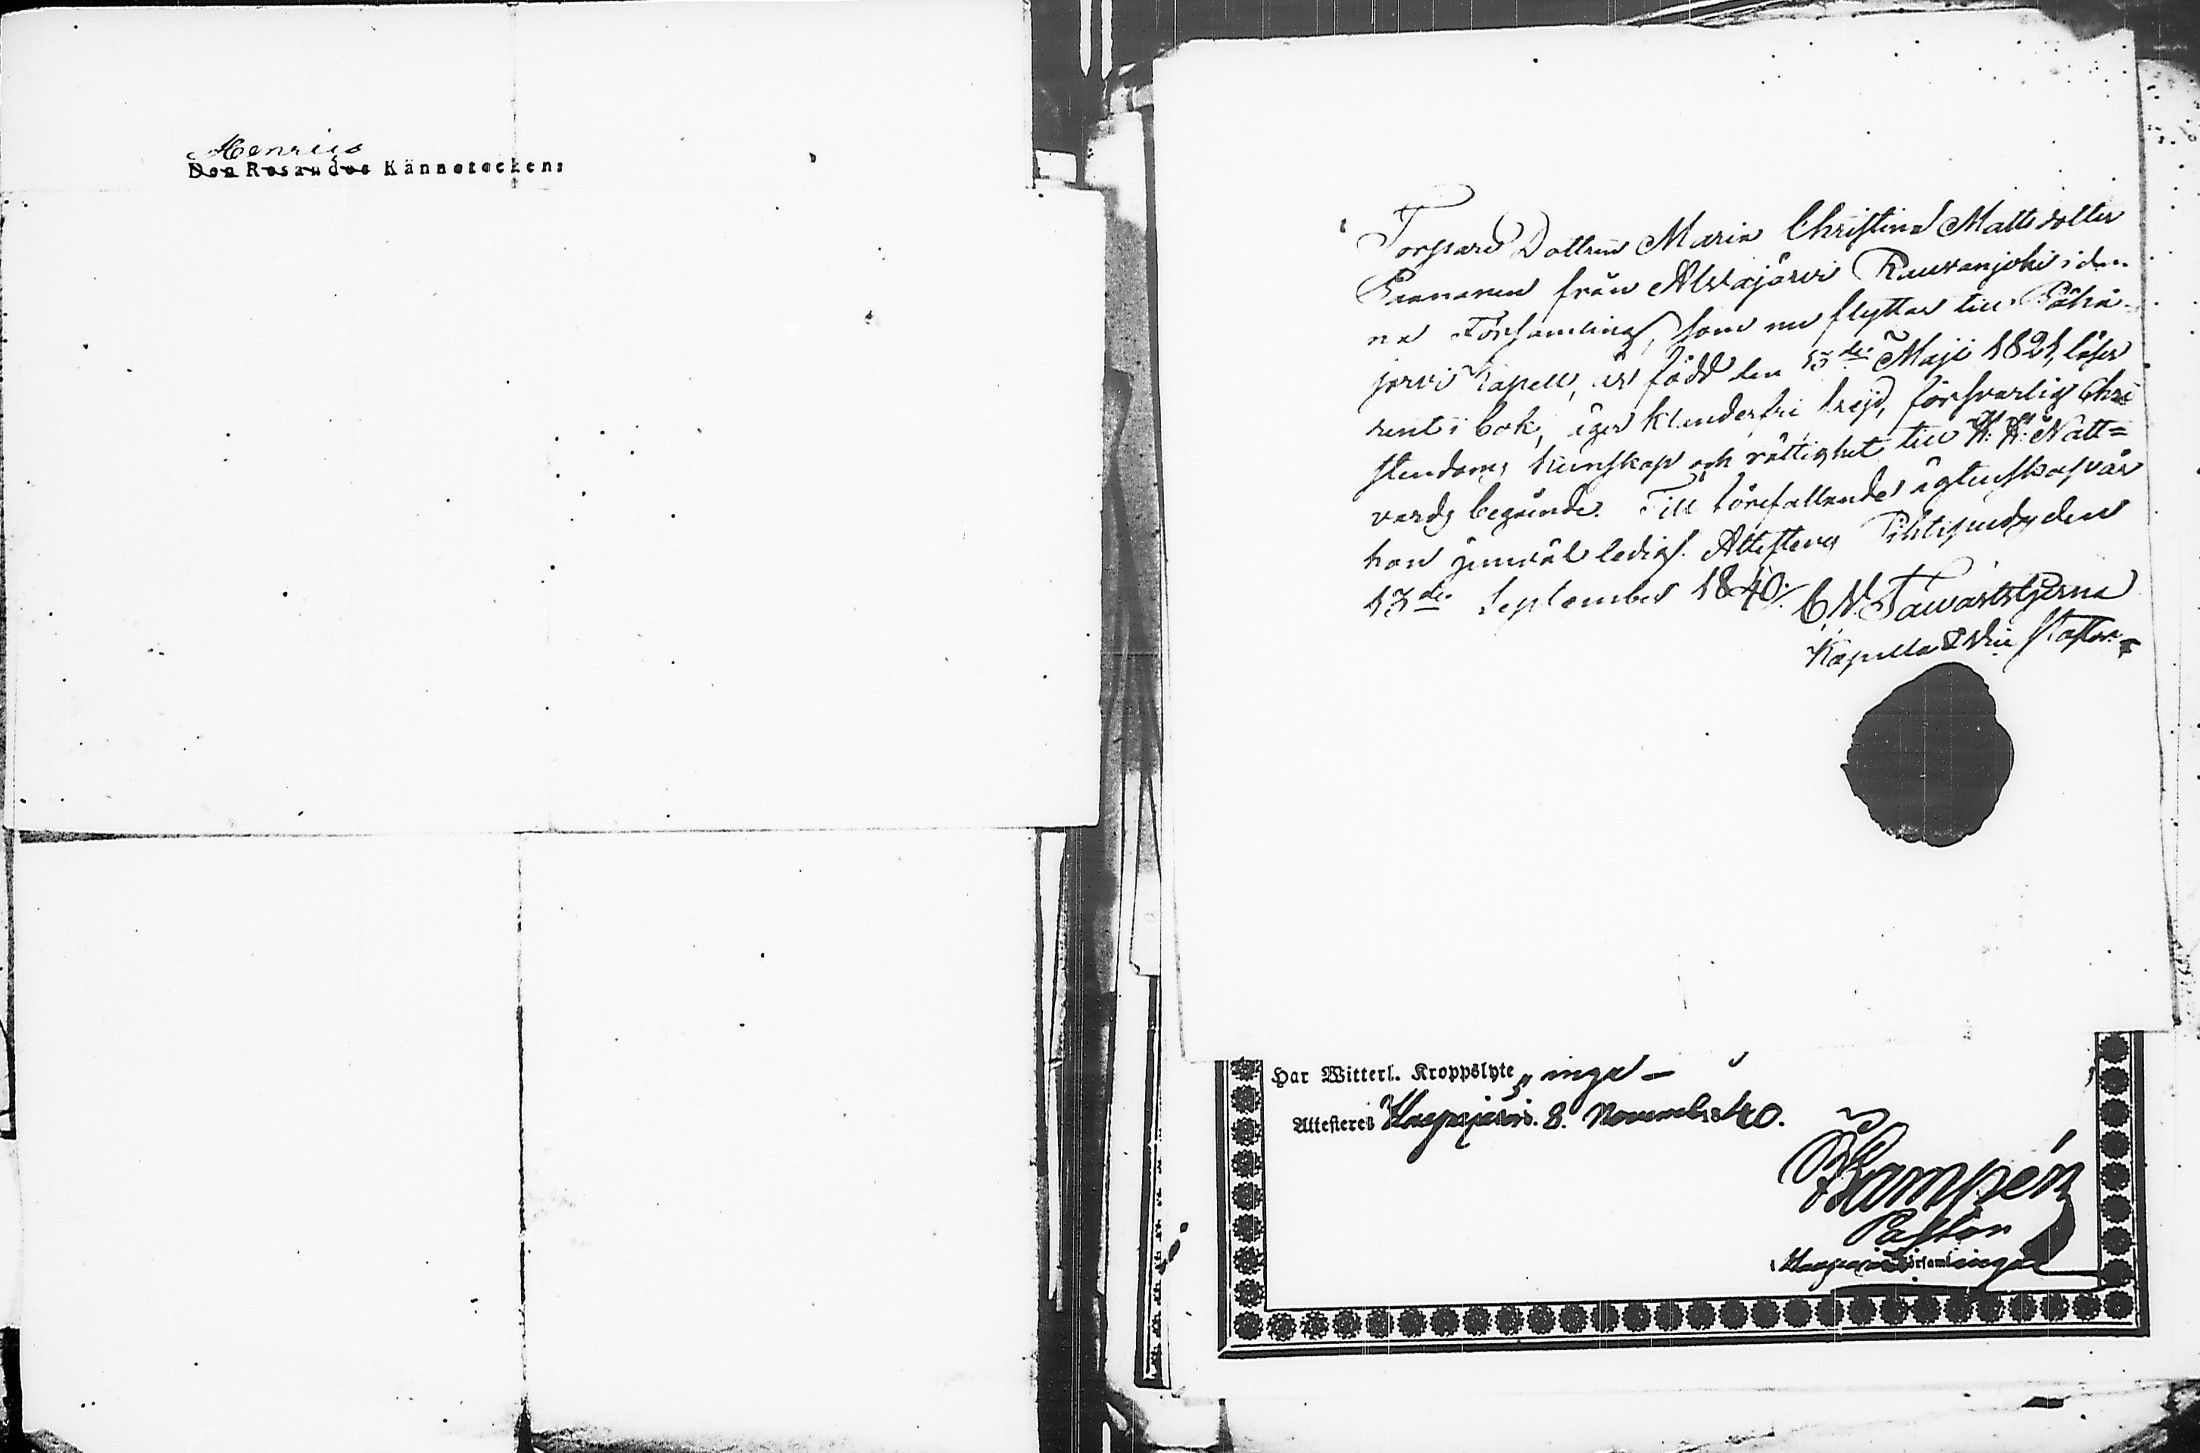 Henriis
Den Resandes Kännetecken:
Torpare Dottren Maria Christina Mattsdotter
Paananen från Alvajärvi Rauvanjoki i den-
na Församling, som nu flyttar till Pihla-
jarvi Kapell, är född den 13de Maji 1821, läser
rent i bok, äger klanderfri frejd, försvarlig Chri-
stendoms kunskap och rättighet till H. H. Natt=
vards begående. Till förefallande ägtenskap är
hon jemväl ledig. Attesteras Pihtipudas den
13de September 1840.
C N Tawaststjerna
Kapellan & Vice Pastor
Har Witterl. Kroppslyte, inga —
Attesteras Haapajärvi d. 8. Novemb. 1840.
Kampén
Pastor
i Haapajärvi Församlinga